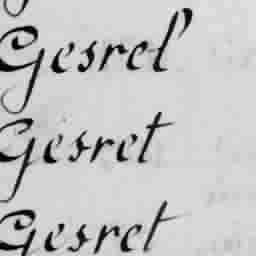 Gesrel
Gesret
Gesret